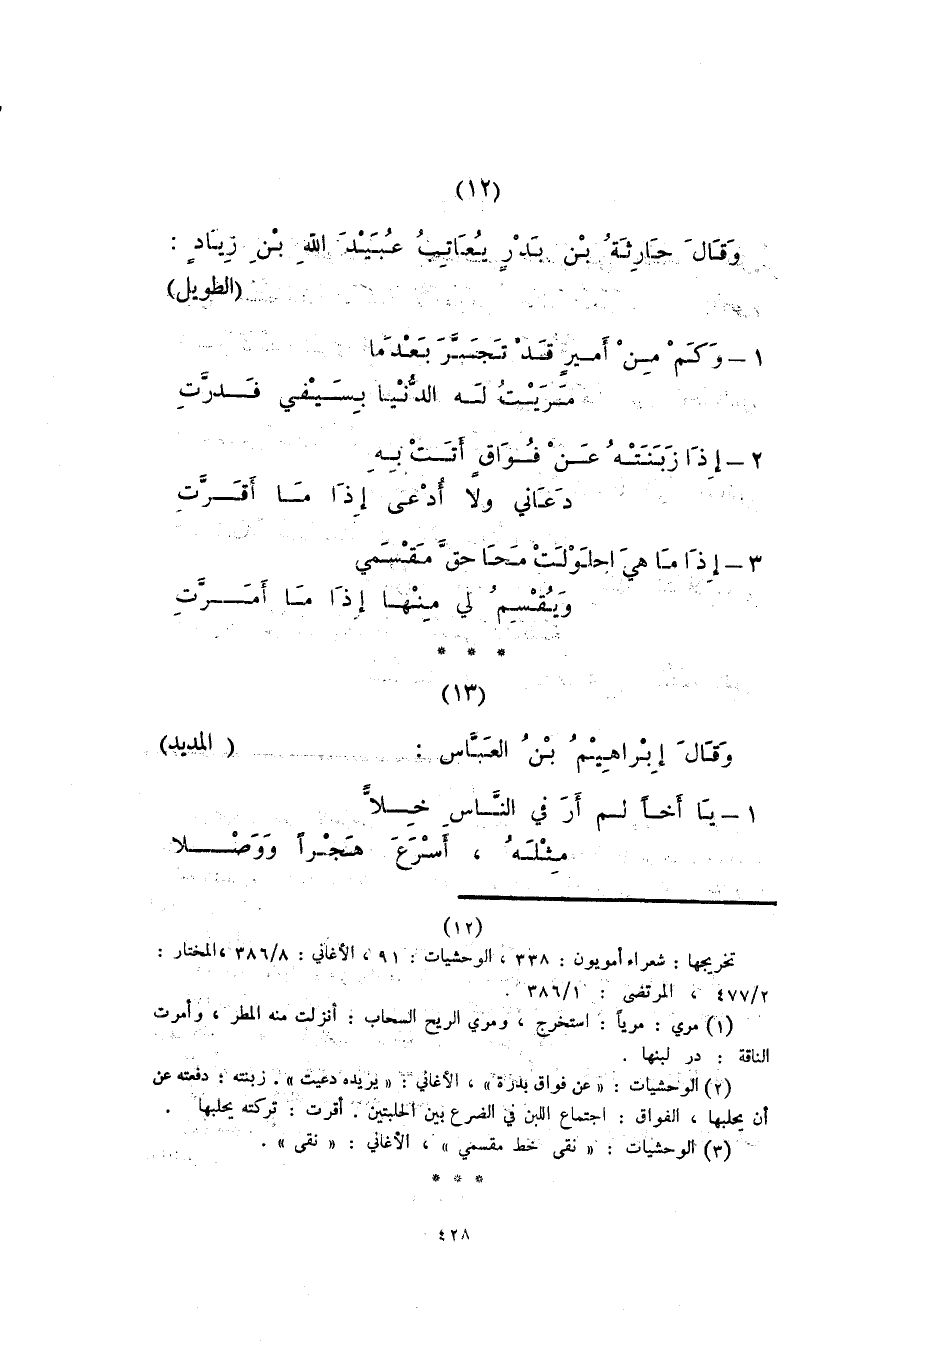 (١٢)
وَقَالَ حَارِثَةُ بْن بَدْرٍ يُعَاتِبُ عُبَيْدَ اللهِ بْنِ زِيَادٍ :
(الطويل)
١ – وَكَمْ مِنْ أَميرٍ قَدْ تَجَبَّرَ بَعْدَما
مَرَيْتُ لَه الدُّنْيا بِسَيْفي فَدرَّتِ
٢ – إِذَا زَبَنَتْهُ عَنْ فُوَاقٍ أَتَتْ بِهِ
دَعَاني ولا أُدْعى إِذَا مَا أَقَرَّتِ
٣ – إِذَا مَا هيَ احلَوْلَتْ مَحَا حقَّ مَقْسَمي
وَيُقْسِمُ لي مِنْها إِذَا مَا أَمَرَّتِ
* * *
(١٣)
وَقَالَ إِبْراهِيْمُ بْنُ العَبَّاسِ : ( المديد)
١ – يَا أَخاً لم أَرَ في النَّاسِ خِلاًّ
مِثْلَهُ ، أَسْرَعَ هَجْراً وَوَصْلا
(١٢)
تخريجها : شعراء أمويون : ٣٣٨ ، الوحشيات : ٩١ ، الأغاني : ٣٨٦/٨ ،المختار :
٤٧٧/٢ ، المرتضى : ٣٨٦/١ .
(١) مري : مرياً : استخرج ، ومري الريح السحاب : أنزلت منه المطر ، وأمرت
الناقة : در لبنها .
(٢) الوحشيات : « عن فواق بدرة » ، الأغاني : « يريده دعيت » . زبنته : دفعته عن
أن يحلبها ، الفواق : اجتماع اللبن في الضرع بين الحلبتين . أقرت : تركته يحلبها .
(٣) الوحشيات : « نقى خط مقسمي » ، الأغاني : « نقى » .
* * *
٤٢٨